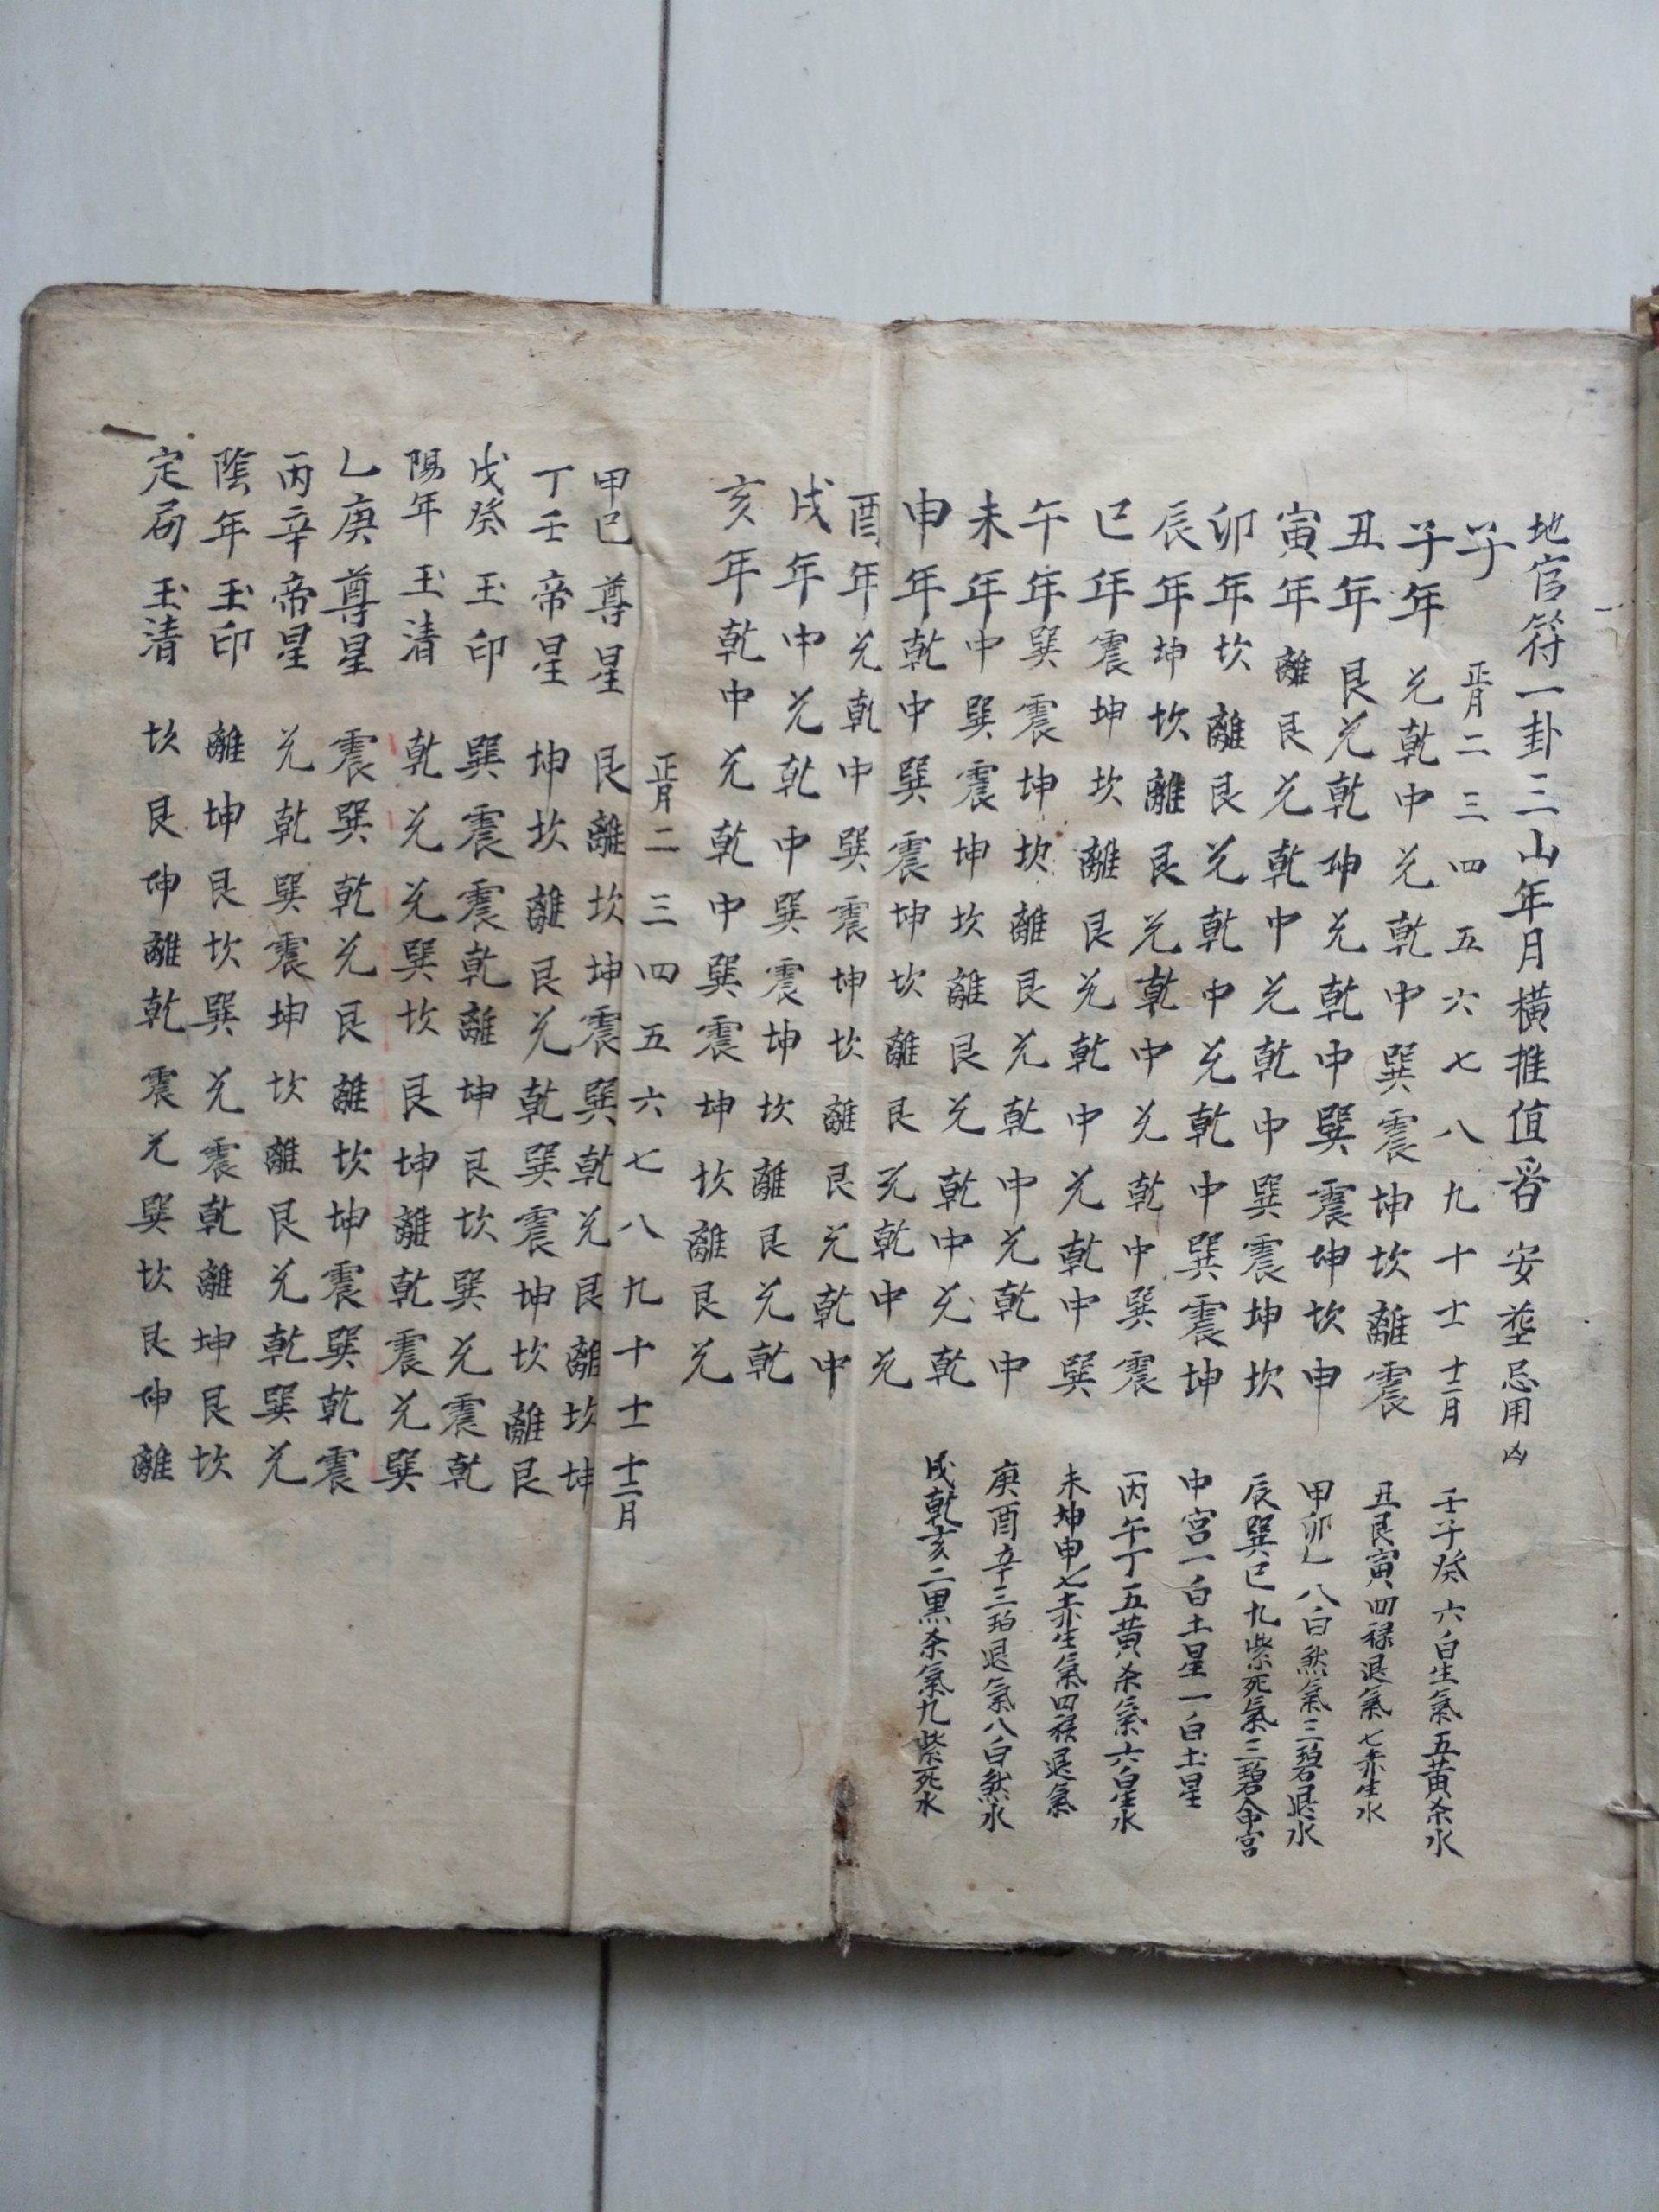 地官符一卦三山年月橫推值 安塟忌用凶
子 正月二三四五六七八九十十一十二月
子年兑乾中兑乾中巽震坤坎離震
丑年艮兑乾坤兑乾中巽震坤坎申
寅年離艮兑乾中兑乾中巽震坤坎
卯年坎離艮兑乾中兑乾中巽震坤
辰年坤坎離艮兑乾中兑乾中巽震
巳年震坤坎離艮兑乾中兑乾中巽
午年巽震坤坎離艮兑乾中兑乾中
未年中巽震坤坎離艮兑乾中兑乾
申年乾中巽震坤坎離艮兑乾中兑
酉年兑乾中巽震坤坎離艮兑乾中
戌年中兑乾中巽震坤坎離艮兑乾
亥年乾中兑乾中巽震坤坎離艮兑
壬子癸六白生氣五黃杀水
丑艮寅四禄退氣七赤生水
甲卯乙八白煞氣三碧退水
辰巽巳九紫死氣三碧命宮
中宮一白土星一白土星
丙午丁五黃杀氣六白生水
未坤申七赤生氣四禄退氣
庚酉辛三碧退氣八白煞水
戌乾亥二黑杀氣九紫死水
正月二三四五六七八九十十一十二月
甲已尊星艮離坎坤震巽乾兑艮離坎坤
丁壬帝星坤坎離艮兑乾巽震坤坎離艮
戊癸玉印巽震震乾離坤艮坎巽兑震乾
陽年玉清乾兑兑巽坎艮坤離乾震兑巽
乙庚尊星震巽乾兑艮離坎坤震巽乾震
丙辛帝星兑乾巽震坤坎離艮兑乾巽兑
陰年玉印離坤艮坎巽兑震乾離坤艮坎
定局玉清坎艮坤離乾震兑巽坎艮坤離